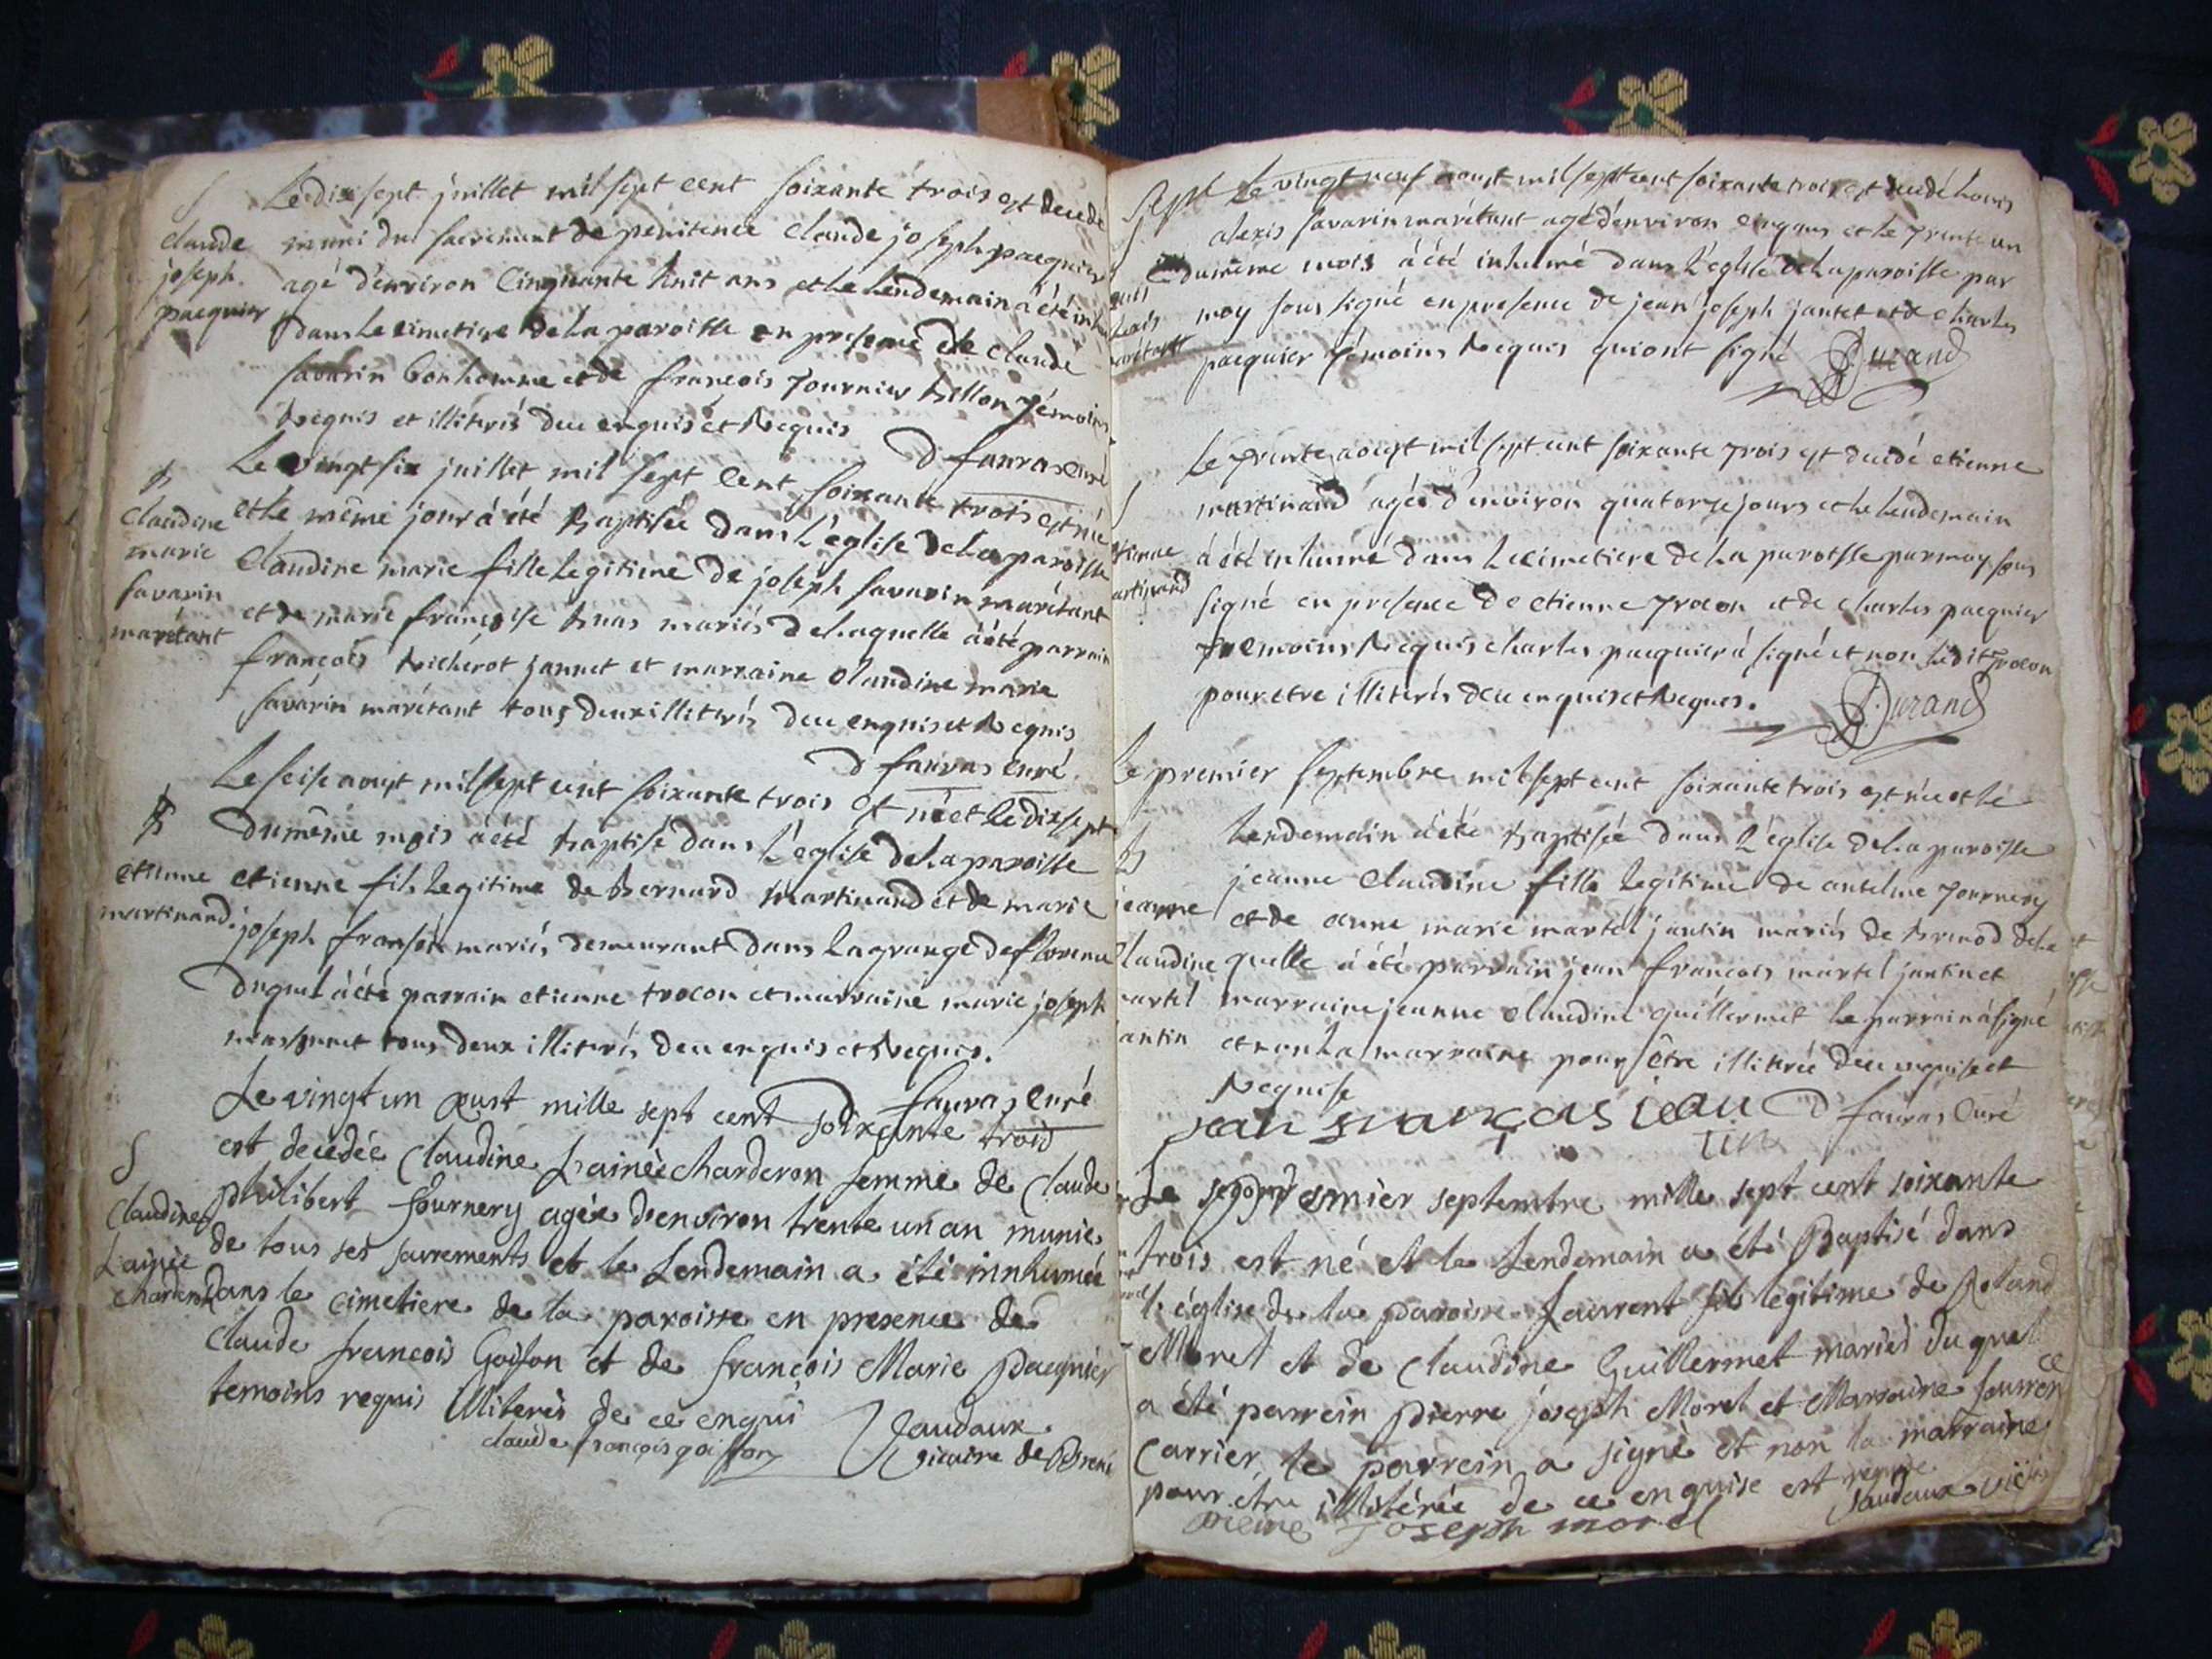 S Le dix sept juillet mil sept cent soixante trois est decedé
claude muni du sacrement de penitence claude joseph pacquier
joseph agé d'environ cinquante huit ans et le lendemain à été inhu
pacquier dans le cimetiere de la paroisse en presence de claude
savarin bonhomme et de françois fournier billon témoins
requis et illiterés de ce enquis et requis
D fauvas curé
Le vingt six juillet mil sept cent soixante trois est née
B
claudine et le même jour à été baptisée dans l'église de la paroisse
marie claudine marie fille legitime de joseph savarin marétant
savarin et de marie françoise bnas mariés de laquelle à été parrain
marétant françois richerot jannet et marraine claudine marie
savarin marétant tous deux illiterés de ce enquis et requis
D fauvas curé
Le seise aoust mil sept cent soixante trois est né et le dix sept
B du même mois à été baptisé dans l'église de la paroisse
etienne etienne fils legitime de bernard martinand et de marie
martinand. joseph mariés demeurant dans la grange de florence
duquel à été parrain etienne trocon et marraine marie joseph
tous deux illiterés de ce enquis et requis.
fauvas curé
Le vingt un aust mille sept cent soixante trois
S est decedée Claudine Lainée charderon femme de Claude
Claudine philibert fournery agée d'environ trente un an munie
Lainée de tous ses sacrements et le Lendemain a été innhumée
charderon dans le cimetiere de la paroisse en presence de
Claude francois Goiffon et de francois Marie Pacquier
temoins requis illiterés de ce enqui
claude françois goiffon Jaudaux
vicaire de Brenó
sept Le vingt neuf aoust mil sept cent soixante trois est decedé louis
S alexis savarin marétant agé d'environ cinq ans et le trente un
du même mois à été inhumé dans l'église de la paroisse par
louis
alexis moy sous signé en presence de jean joseph jantet et de charles
marétant pacquier témoins requis qui ont signé Durand
Le trente aoust mil sept cent soixante trois est decedé etienne
S martinand agée d'environ quatorze jours et le lendemain
etienne à été inhumé dans le cimetiere de la paroisse par moy sous
martinand signé en presence de etienne trocon et de charles pacquier
temoins requis charles pacquier à signé et non ledit trocon
pour etre illiterés de ce enquis et requis. Durand
Le premier septembre mil sept cent soixante trois est née et le
B lendemain à été baptisée dans l'église de la paroisse
jeanne jeanne claudine fille legitime de anselme fournery
et de anne marie martel jantin mariés de brenod de la
claudine quelle à été parrain jean françois martel jantin et
martel marraine jeanne claudine guillermet le parrain à signé
jantin et non la marraine pour être illiterée de ce enquise et
requise
jean françois jan D fauvas curé
tin
Le premier septembre mille sept cent soixante
trois est né et le Lendemain a été Baptisé dans
l'église de la paroisse Laurent fils legitime de Roland
Morel et de Claudine Guillermet mariés duquel
a été parrein pierre joseph Morel et Marraine Laurence
Carrier le parrein a signé et non la marraine
pour etre illitérée de ce enquise est requise
pierre joseph morel Jaudaux vicaire